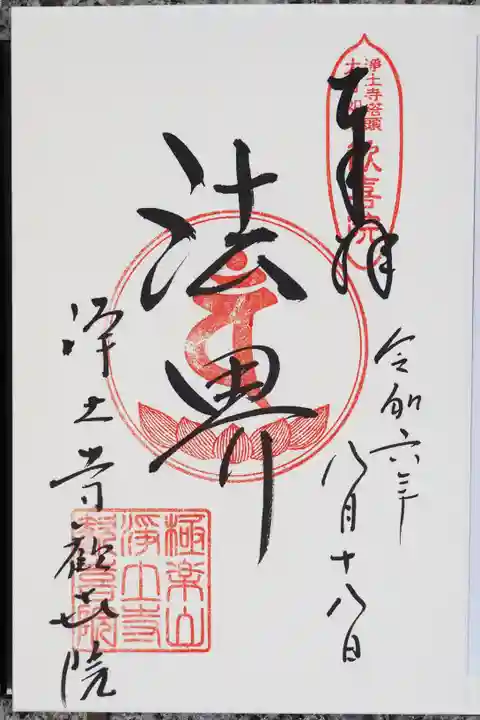 奉拝
令和六年
八月十八日
法界
浄土寺歓喜院
浄土寺塔頭
歓喜院
極楽山
浄土寺
歓喜院